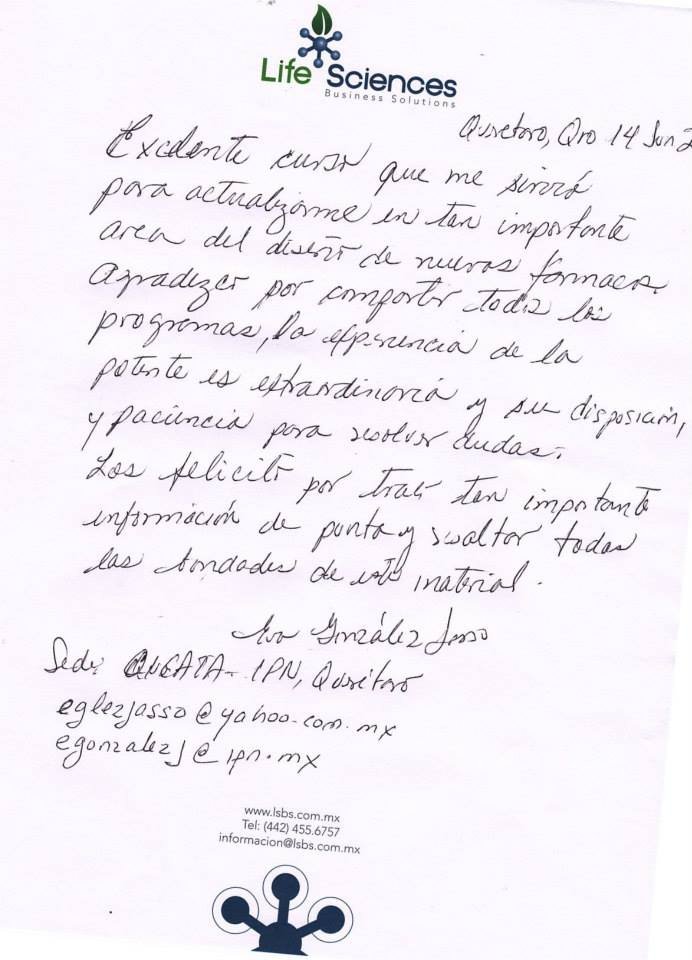 Life Sciences
Business Solutions
Querétaro, Qro 14 Jun 2
Excelente curso que me sirvió
para actualizarme en tan importante
area del diseño de nuevos fármacos.
Agradezco por compartir todos los
programas, la experiencia de la
potente es extraordinaria y su disposición,
y paciencia para resolver dudas.
Los felicito por traer tan importante
información de punta y resaltar todas
las bondades de este material.
Eva González Jasso
Sede: IPN, Querétaro
eglezjasso@yahoo.com.mx
egonzalezj@ipn.mx
www.lsbs.com.mx
Tel: (442) 455.6757
informacion@lsbs.com.mx